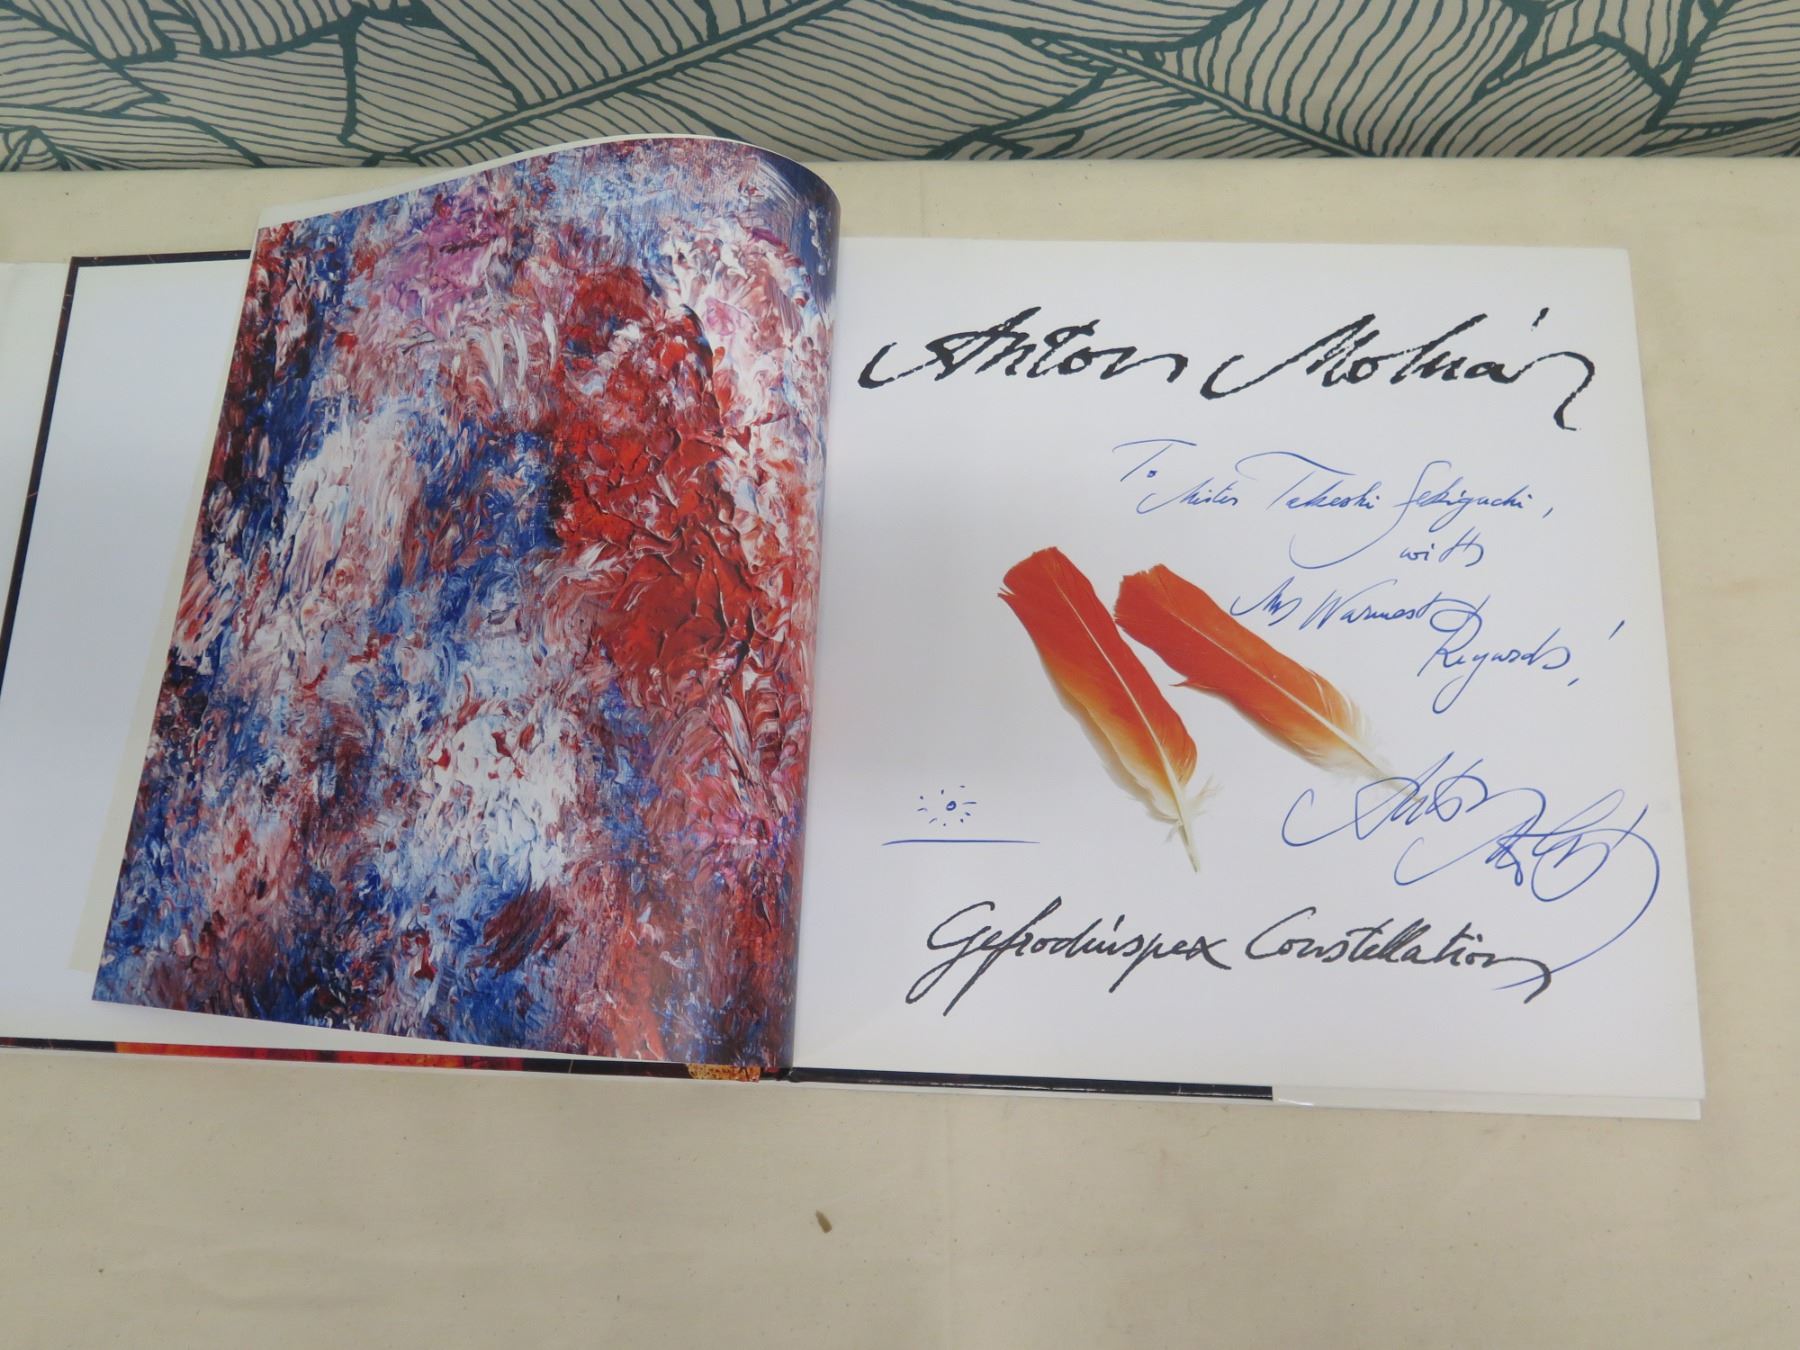 Anton Molnár
To
Mister Takeshi Sekiguchi,
with
My Warmest
Regards!
Anton
Gefrodinspex Constellation